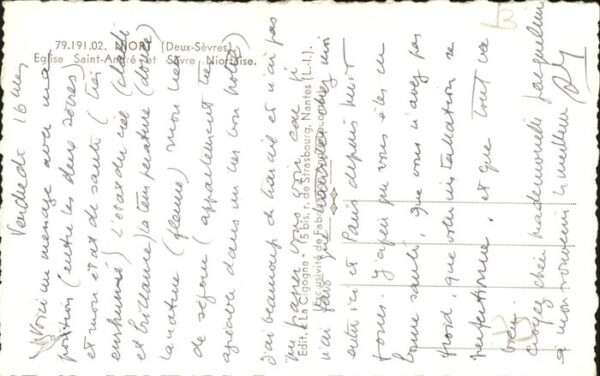 79.191.02. NIORT (Deux-Sèvres).
Eglise Saint-André et Sèvre Niortaise.
Vendredi 16 mai
Voici un message avec ma
position (entre les deux Sèvres)
et mon état de santé (très
enrhumé) L'état du ciel (chaud
et brillant) la température (douce)
la nature (fleurie) mon lieu
de séjour (appartement très
agréable dans un bon hôtel)
J'ai beaucoup de travail et n'ai pas
pu passer vous voir car je
n'ai fait que chez moi
entre ici et Paris depuis huit
jours. J'espère que vous êtes en
bonne santé, que vous n'avez pas
froid, que votre installation se
perfectionne, et que tout va
bien.
Croyez chère mademoiselle Jacqueline
à mon souvenir le meilleur
Edit. "La Cigogne" - 15 bis, r. de Strasbourg, Nantes (L.-I.).
Exclusivité de
B